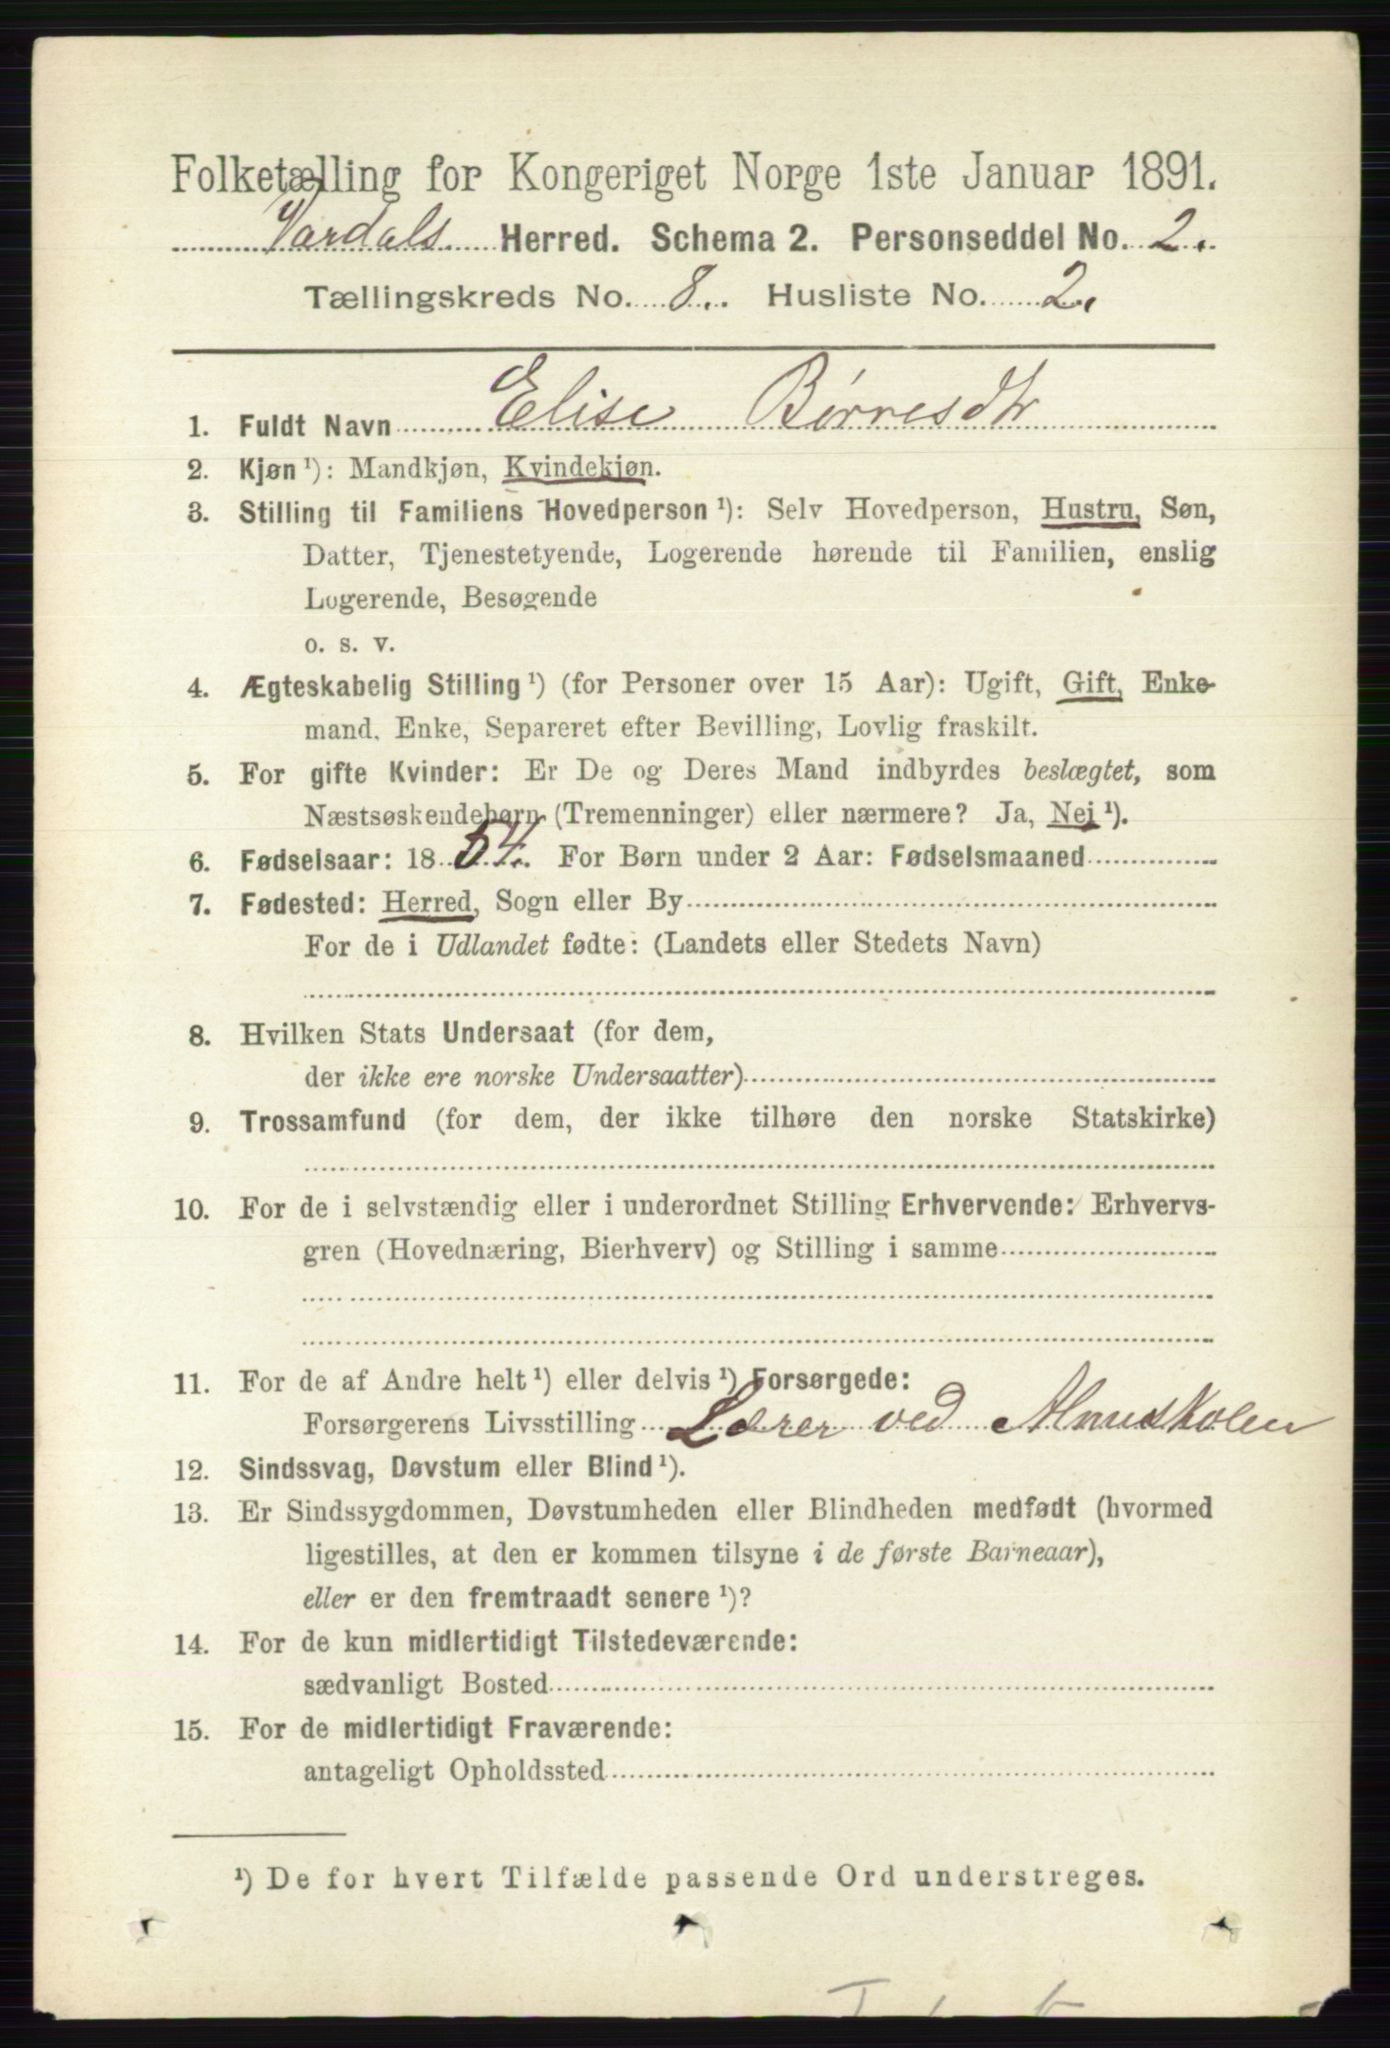 Folketælling for Kongeriget Norge 1ste Januar 1891.
Vardals Herred. Schema 2. Personseddel No. 2.
Tællingskreds No. 8. Husliste No. 2.
1. Fuldt Navn Elise Børresdtr
2. Kjøn ¹): Mandkjøn, Kvindekjøn.
3. Stilling til Familiens Hovedperson ¹): Selv Hovedperson, Hustru, Søn,
Datter, Tjenestetyende, Logerende hørende til Familien, enslig
Logerende, Besøgende
o. s. v.
4. Ægteskabelig Stilling ¹) (for Personer over 15 Aar): Ugift, Gift, Enke-
mand, Enke, Separeret efter Bevilling, Lovlig fraskilt.
5. For gifte Kvinder: Er De og Deres Mand indbyrdes beslægtet, som
Næstsøskendebørn (Tremenninger) eller nærmere? Ja, Nei ¹).
6. Fødselsaar: 1854. For Børn under 2 Aar: Fødselsmaaned
7. Fødested: Herred, Sogn eller By
For de i Udlandet fødte: (Landets eller Stedets Navn)
8. Hvilken Stats Undersaat (for dem,
der ikke ere norske Undersaatter)
9. Trossamfund (for dem, der ikke tilhøre den norske Statskirke)
10. For de i selvstændig eller i underordnet Stilling Erhvervende: Erhvervs-
gren (Hovednæring, Bierhverv) og Stilling i samme
11. For de af Andre helt ¹) eller delvis ¹) Forsørgede:
Forsørgerens Livsstilling Lærer ved Almuskolen
12. Sindssvag, Døvstum eller Blind ¹).
13. Er Sindssygdommen, Døvstumheden eller Blindheden medfødt (hvormed
ligestilles, at den er kommen tilsyne i de første Barneaar),
eller er den fremtraadt senere ¹)?
14. For de kun midlertidigt Tilstedeværende:
sædvanligt Bosted
15. For de midlertidigt Fraværende:
antageligt Opholdssted
¹) De for hvert Tilfælde passende Ord understreges.